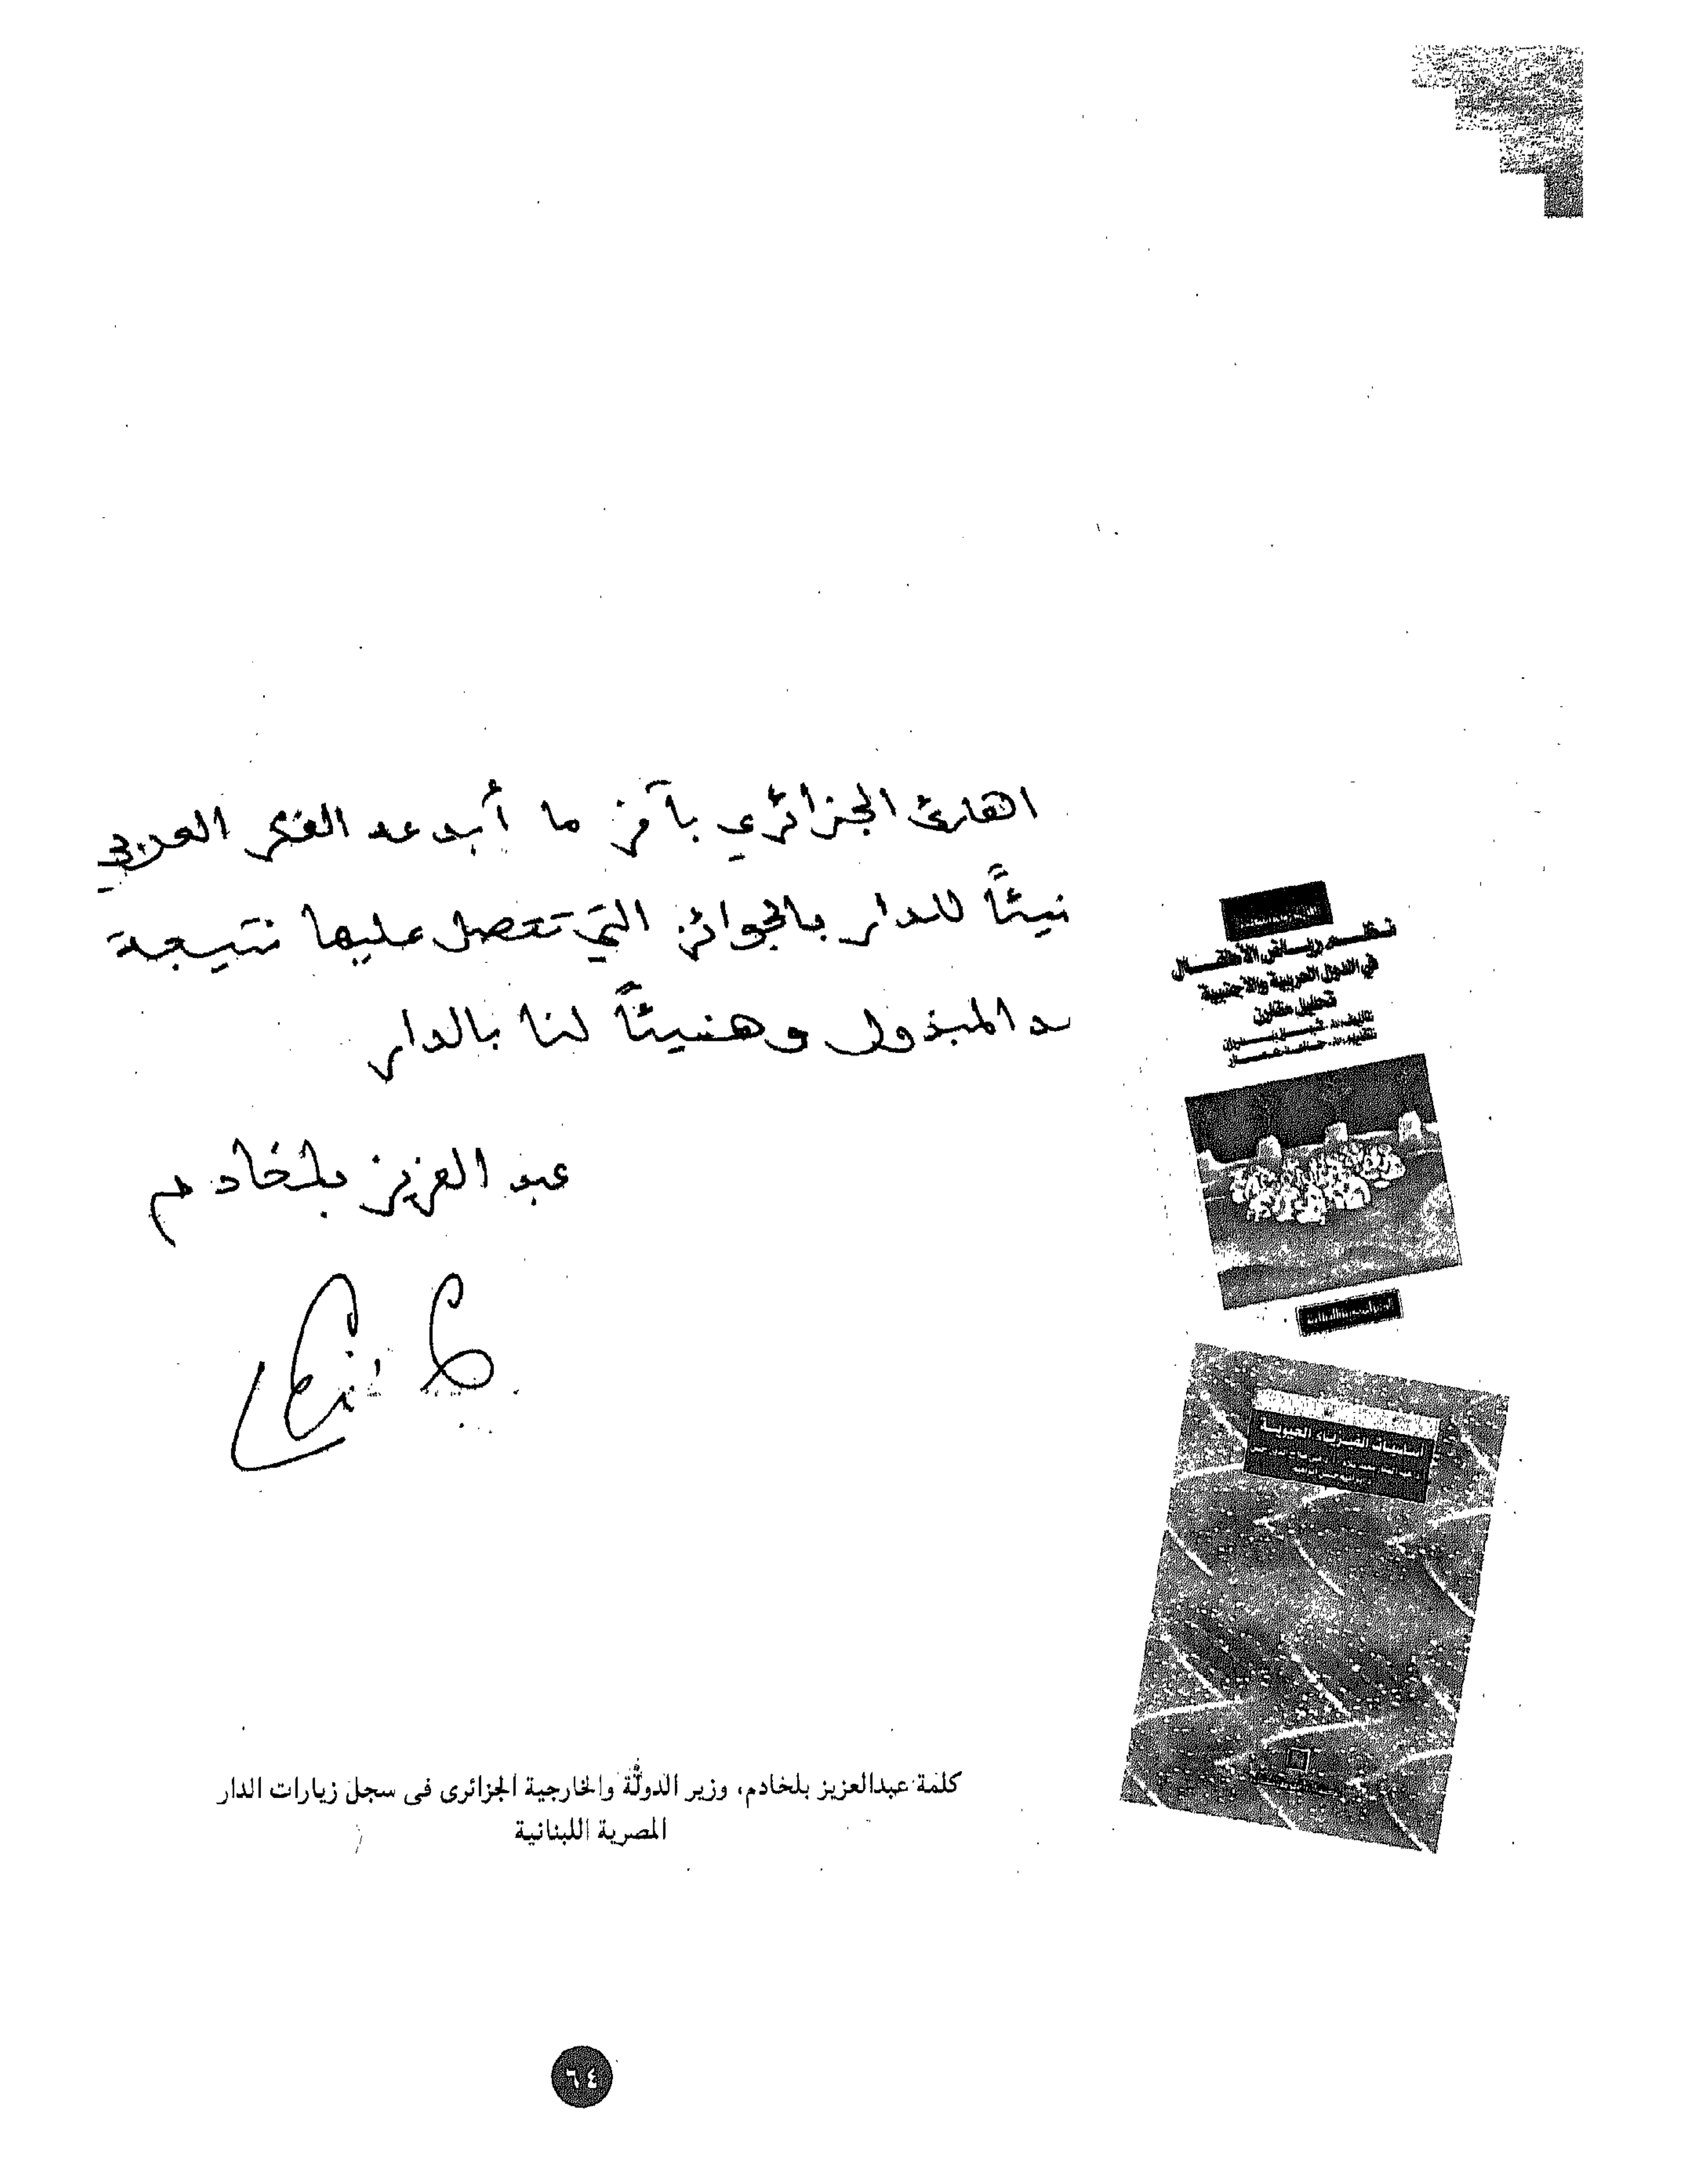 القارئ الجزائري بآخر ما أبدعه الفكر العربي
نيئاً للدار بالجوائز التي تحصل عليها نتيجة
د المبذول وهنيئاً لنا بالدار
عبد العزيز بلخادم
نظم رياض الأطفال
في الدول العربية والأجنبية
تحليل مقارن
كلمة عبدالعزيز بلخادم، وزير الدولة والخارجية الجزائرى فى سجل زيارات الدار
المصرية اللبنانية
٦٤